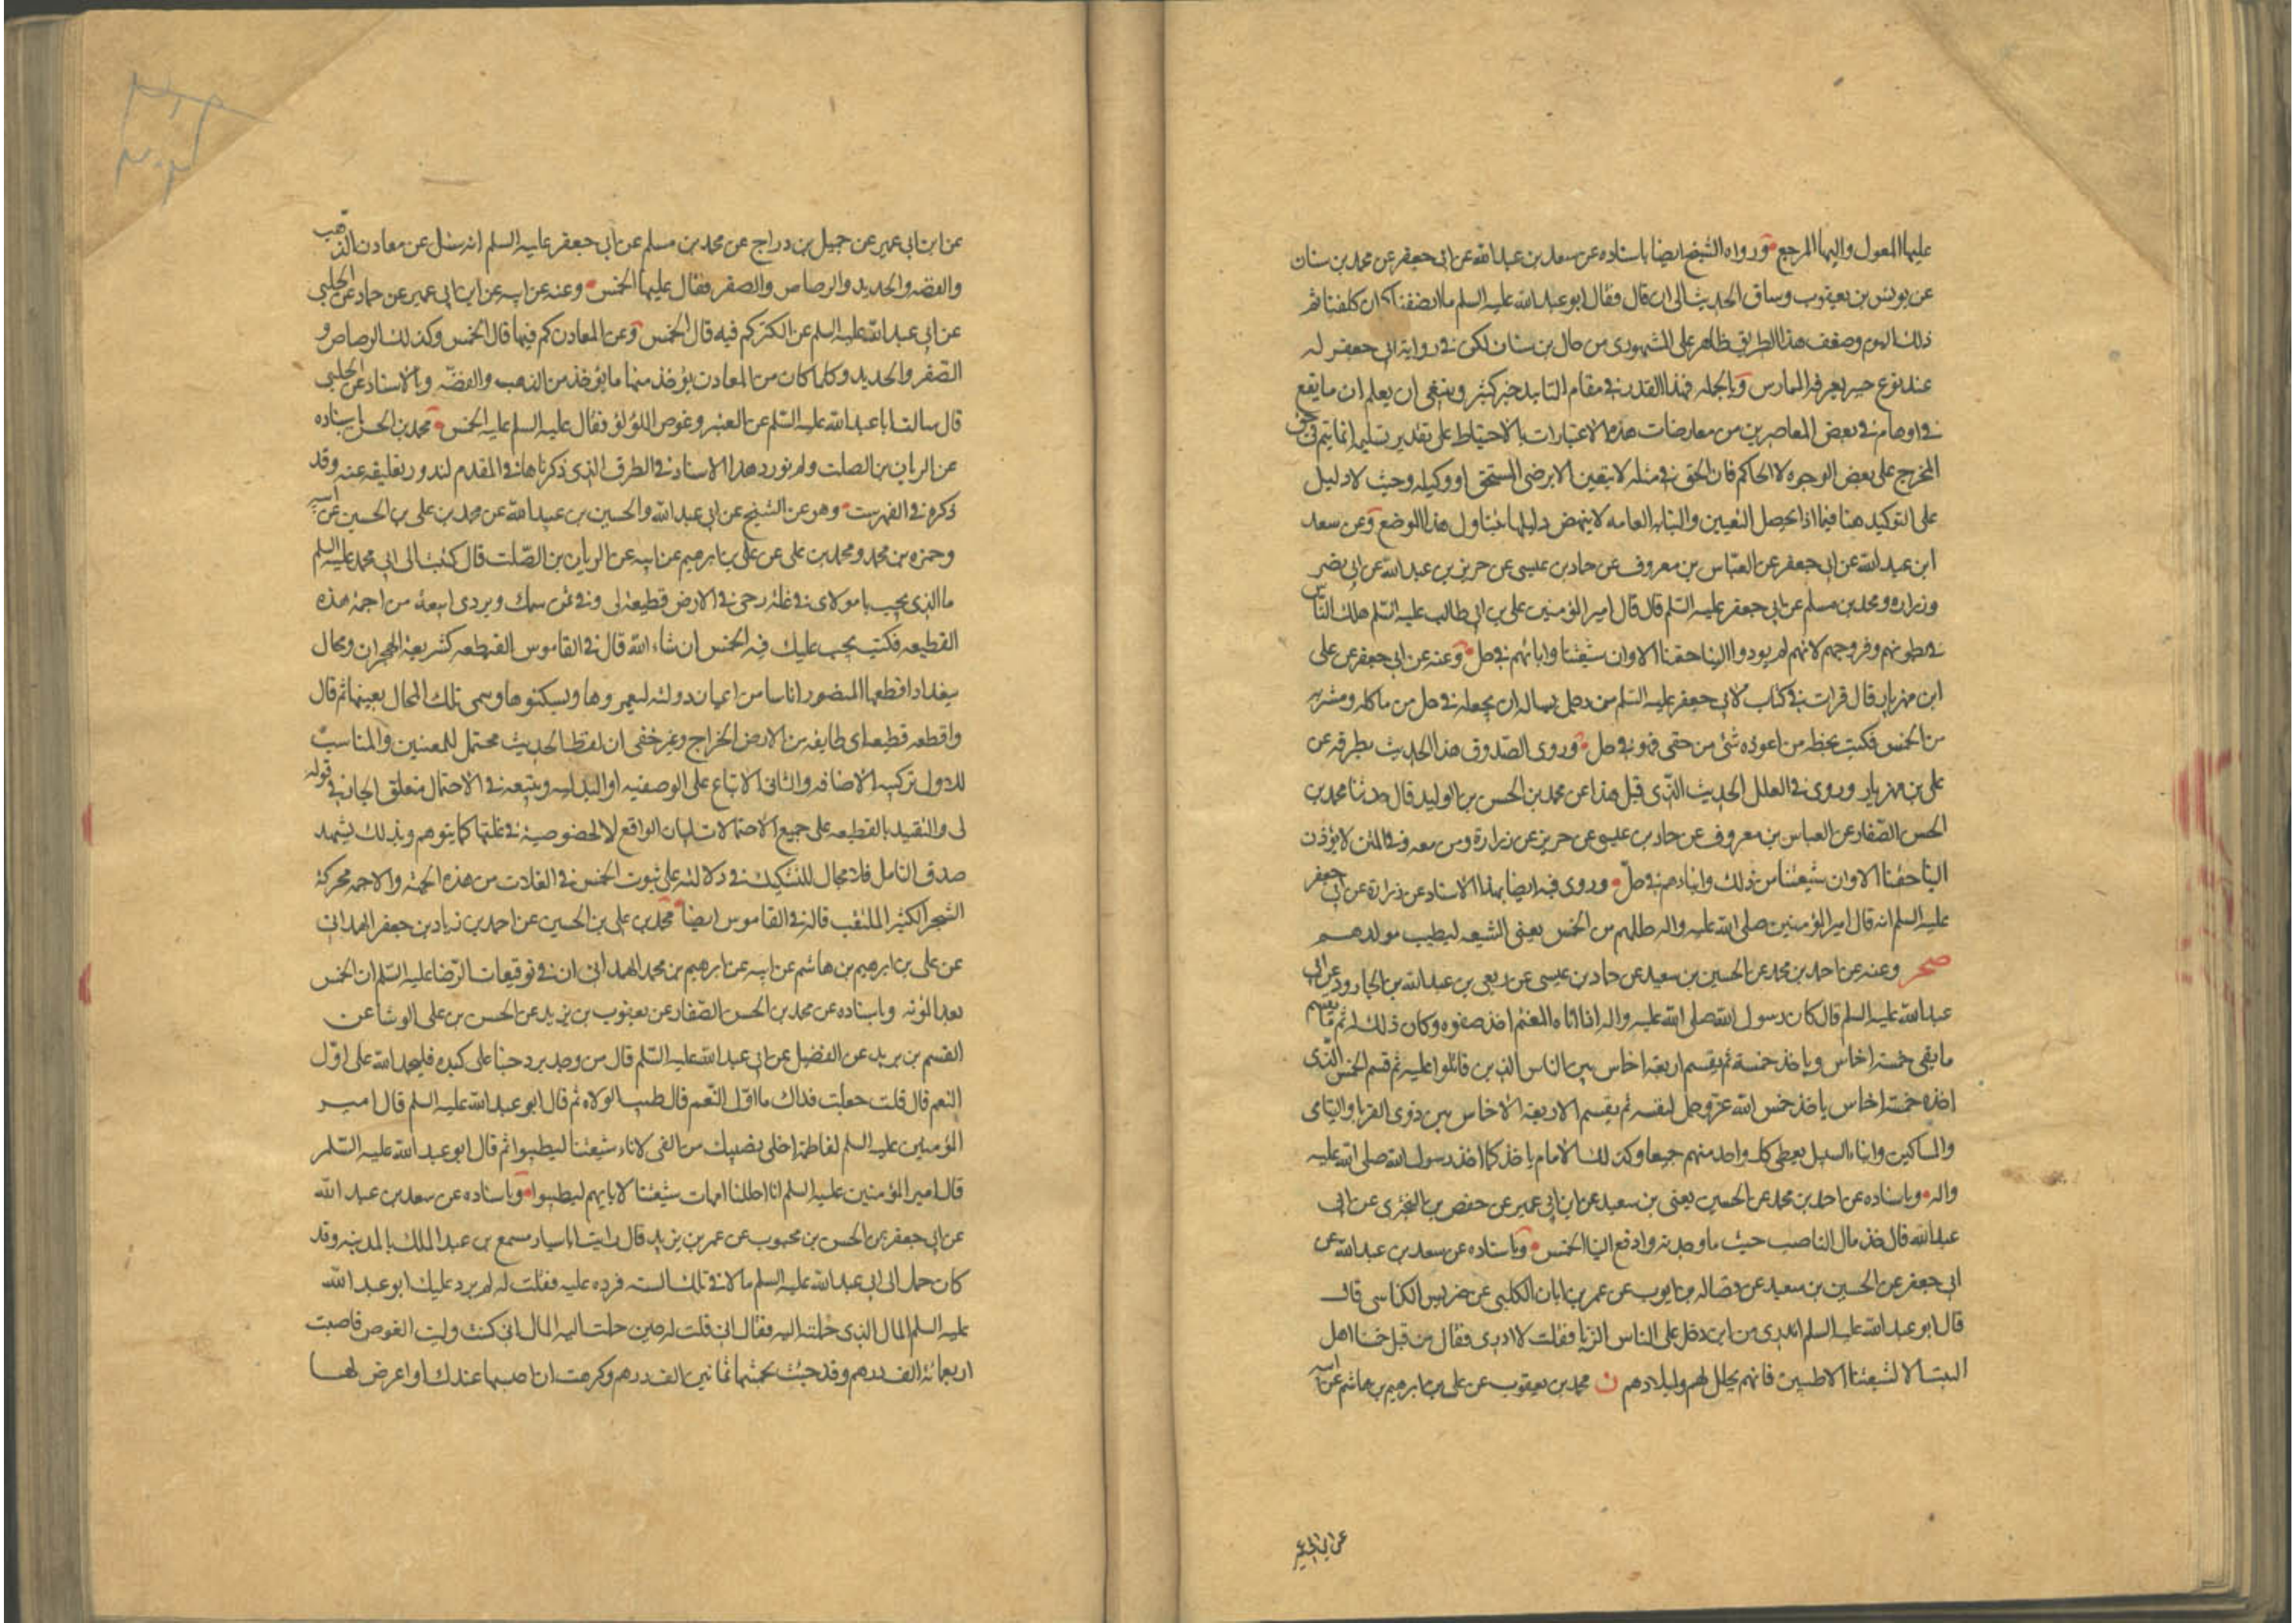 عليها المعول واليها المرجع ورواه الشيخ ايضا باسناده عن سعد بن عبد الله عن ابى جعفر عن محمد بن سنان
عن يونس بن يعقوب وساق الحديث الى ان قال فقال ابو عبد الله عليه السلم ما انصفناكم ان كلفناكم
ذلك اليوم وضعف هذا الطريق ظاهر على المشهورى من حال بن سنان لكن فى رواية ابى جعفر له
عند نوع خبر يعرفه الممارس وبالجمله فهذا القدر فى مقام التاييد خير كثير وينبغى ان يعلم ان ما يقع
فى اوهام بعض المعاصرين من معارضات هذه الاعتبارات بالاحتياط على تقدير تسليمه انما يتم فى حق
المخرج على بعض الوجوه لا الحاكم فان الحق فى مثله لا يتعين الا برضى المستحق او وكيله وحيث لا دليل
على التوكيد هنا فيما اذا يحصل التعيين والنيابه العامه لا ينهض دليلها بتناول هذا الوضع وعن سعد
ابن عبد الله عن ابى جعفر عن العباس بن معروف عن حماد بن عيسى عن حريز بن عبد الله عن ابى بصير
وزراره ومحمد بن مسلم عن ابى جعفر عليه السلم قال قال امير المؤمنين على بن ابى طالب عليه السلم هلك الناس
فى بطونهم وفروجهم لانهم لم يودوا الينا حقنا الا وان شيعتنا وابائهم فى حل وعنه عن ابى جعفر عن على
ابن مهزيار قال قرات فى كتاب لابى جعفر عليه السلم من رجل يساله ان يجعله فى حل من ماكله ومشربه
من الخمس فكتب بخطه من اعوزه شئ من حقى فهو فى حل وروى الصدوق هذا الحديث بطرقه عن
على بن مهزيار وروى فى العلل الحديث الذى قبل هذا عن محمد بن الحسن بن الوليد قال حدثنا محمد بن
الحسن الصفار عن العباس بن معروف عن حماد بن عيسى عن حريز عن زرارة ومن معه وفى المتن لا يؤدون
الينا حقنا الا وان شيعتنا من ذلك وابناءهم فى حل وروى فيه ايضا بهذا الاسناد عن زرارة عن ابى جعفر
عليه السلم انه قال امير المؤمنين صلى الله عليه واله حللهم من الخمس يعنى الشيعه ليطيب مولدهم
صحر وعنه عن احمد بن محمد عن الحسين بن سعيد عن حماد بن عيسى عن ربعى بن عبد الله بن الجارود عن ابى
عبد الله عليه السلم قال كان رسول الله صلى الله عليه واله اذا اتاه المغنم اخذ صفوه وكان ذلك له ثم يقسم
ما بقى خمسة اخماس وياخذ خمسه ثم يقسم اربعه اخماس بين الناس الذين قاتلوا عليه ثم قسم الخمس الذى
اخذه خمسة اخماس ياخذ خمس الله عز وجل لنفسه ثم يقسم الاربعه الاخماس بين ذوى القربا واليتامى
والمساكين وابناء السبيل يعطى كل واحد منهم جميعا وكذلك الامام ياخذ كما اخذ رسول الله صلى الله عليه
واله وباسناده عن احمد بن محمد عن الحسين يعنى بن سعيد عن ابن ابى عمير عن حفص بن البخترى عن ابى
عبد الله قال خذ مال الناصب حيث ما وجدته وادفع الينا الخمس وباسناده عن سعد بن عبد الله عن
ابى جعفر عن الحسين بن سعيد عن فضاله بن ايوب عن عمر بن ابان الكلبى عن ضريس الكناسى قال
قال ابو عبد الله عليه السلم اتدرى من اين دخل على الناس الزنا فقلت لا ادرى فقال من قبل خمسنا اهل
البيت الا لشيعتنا الاطيبين فانهم يحلل لهم ولميلادهم ن محمد بن يعقوب عن على بن ابرهيم بن هاشم عن ابيه
عن ابن ابى عمير
عن ابن ابى عمير عن جميل بن دراج عن محمد بن مسلم عن ابى جعفر عليه السلم انه سئل عن معادن الذهب
والفضه والحديد والرصاص والصفر فقال عليها الخمس وعنه عن ابيه عن ابن ابى عمير عن حماد عن الحلبى
عن ابى عبد الله عليه السلم عن الكنز كم فيه قال الخمس وعن المعادن كم فيها قال الخمس وكذلك الرصاص و
الصفر والحديد وكلما كان من المعادن يؤخذ منها ما يؤخذ من الذهب والفضه وبالاسناد عن الحلبى
قال سالت ابا عبد الله عليه السلم عن العنبر وغوص اللؤلؤ فقال عليه السلم عليه الخمس محمد بن الحسن باسناده
عن الريان بن الصلت ولم نورد هذا الاسناد فى الطرق الذى ذكرناها فى المقدم لندور تعليقه عنه وقد
ذكره فى الفهرست وهو عن الشيخ عن ابى عبد الله والحسين بن عبيد الله عن محمد بن على بن الحسين عن ابيه
وحمزه بن محمد ومحمد بن على عن على بن ابرهيم عن ابيه عن الريان بن الصلت قال كتبت الى ابى محمد عليه السلم
ما الذى يجب يا مولاى فى غلة رحى فى الارض قطيعة لى وفى ثمن سمك وبردى ابيعه من اجمة هذه
القطيعه فكتب يجب عليك فيه الخمس ان شاء الله قال فى القاموس القطيعه كشريعة الهجران ومحال
ببغداد اقطعها المنصور اناسا من اعيان دولته ليعمروها ويسكنوها وسمى تلك المحال بعينها ثم قال
واقطعه قطيعة اى طايفه من الارض الخراج وغير خفى ان لفظ الحديث محتمل للمعنيين والمناسب
للاول تركيبه الاضافه والثانى الاتباع على الوصفيه او البدليه ويتبعه فى الاحتمال متعلق الجار فى قوله
لى والتقييد بالقطيعه على جميع الاحتمالات لبيان الواقع لا لخصوصية فى غلتها كما يتوهم وبذلك يشهد
صدق التامل فلا مجال للتشكيك فى دلالته على ثبوت الخمس فى الغلات من هذه الجهه والاجمه محركة
الشجر الكثير الملتف قاله فى القاموس ايضا محمد بن على بن الحسين عن احمد بن زياد بن جعفر الهمدانى
عن على بن ابرهيم بن هاشم عن ابيه عن ابرهيم بن محمد الهمدانى ان فى توقيعات الرضا عليه السلم ان الخمس
بعد المؤنه وباسناده عن محمد بن الحسن الصفار عن يعقوب بن يزيد عن الحسن بن على الوشا عن
القسم بن بريد عن الفضيل عن ابى عبد الله عليه السلم قال من وجد برد حبنا على كبده فليحمد الله على اول
النعم قال قلت جعلت فداك ما اول النعم قال طيب الولاده ثم قال ابو عبد الله عليه السلم قال امير
المؤمنين عليه السلم لفاطمة احلى نصيبك من الفى لاباء شيعتنا ليطيبوا ثم قال ابو عبد الله عليه السلم
قال امير المؤمنين عليه السلم انا احللنا امهات شيعتنا لابايهم ليطيبوا وباسناده عن سعد بن عبد الله
عن ابى جعفر عن الحسن بن محبوب عن عمر بن يزيد قال رايت ابا سيار مسمع بن عبد الملك بالمدينه وقد
كان حمل الى ابى عبد الله عليه السلم مالا فى تلك السنه فرده عليه فقلت له لم رد عليك ابو عبد الله
عليه السلم المال الذى حملته اليه فقال انى قلت له حين حملت اليه المال انى كنت وليت الغوص فاصبت
اربعمائة الف درهم وقد جئت بخمسها ثمانين الف درهم وكرهت ان احبسها عندك او اعرض لها